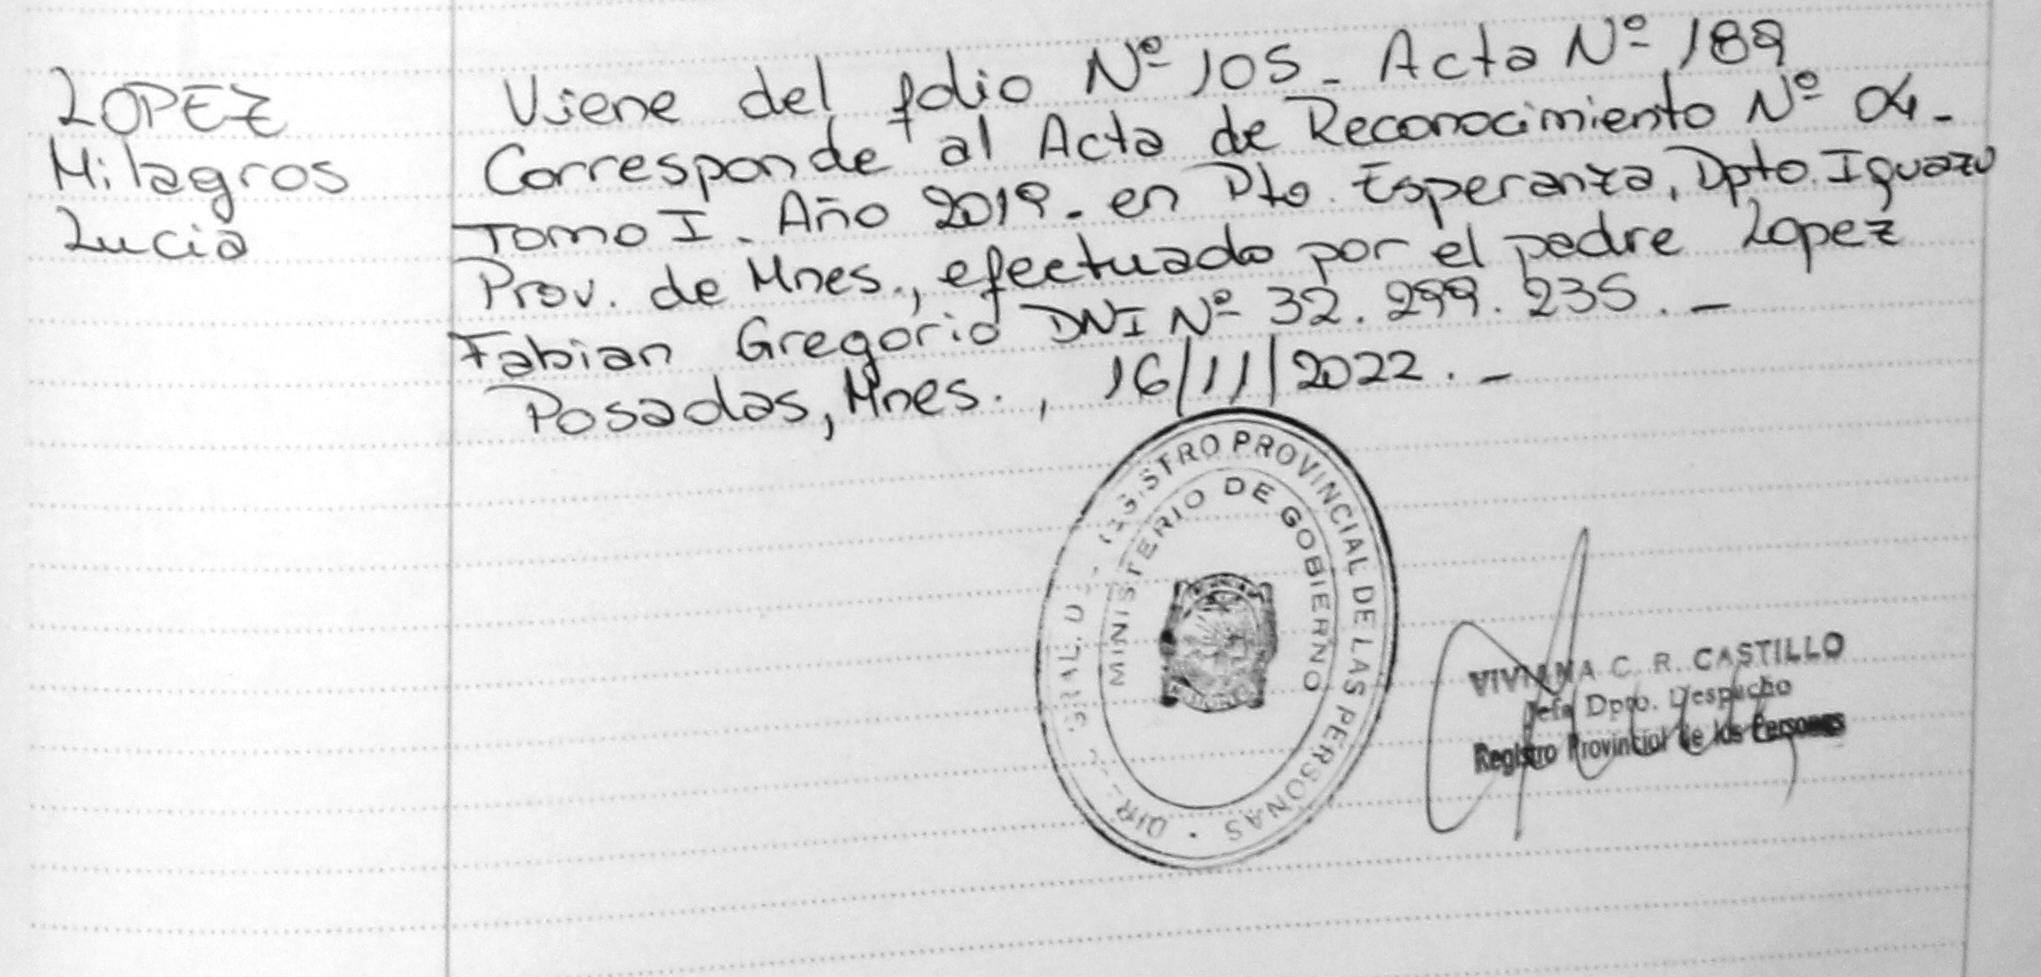 LOPEZ
Milagros
Lucia
Viene del folio Nº 105 - Acta Nº 189
Corresponde al Acta de Reconocimiento Nº 04 -
Tomo I - Año 2019 - en Pto. Esperanza, Dpto. Iguazu
Prov. de Mnes., efectuado por el padre Lopez
Fabian Gregorio DNI Nº 32.299.235. -
Posadas, Mnes., 16/11/2022. -
REGISTRO PROVINCIAL DE LAS PERSONAS
MINISTERIO DE GOBIERNO
VIVIANA C. R. CASTILLO
Jefa Dpto. Despacho
Registro Provincial de las Personas